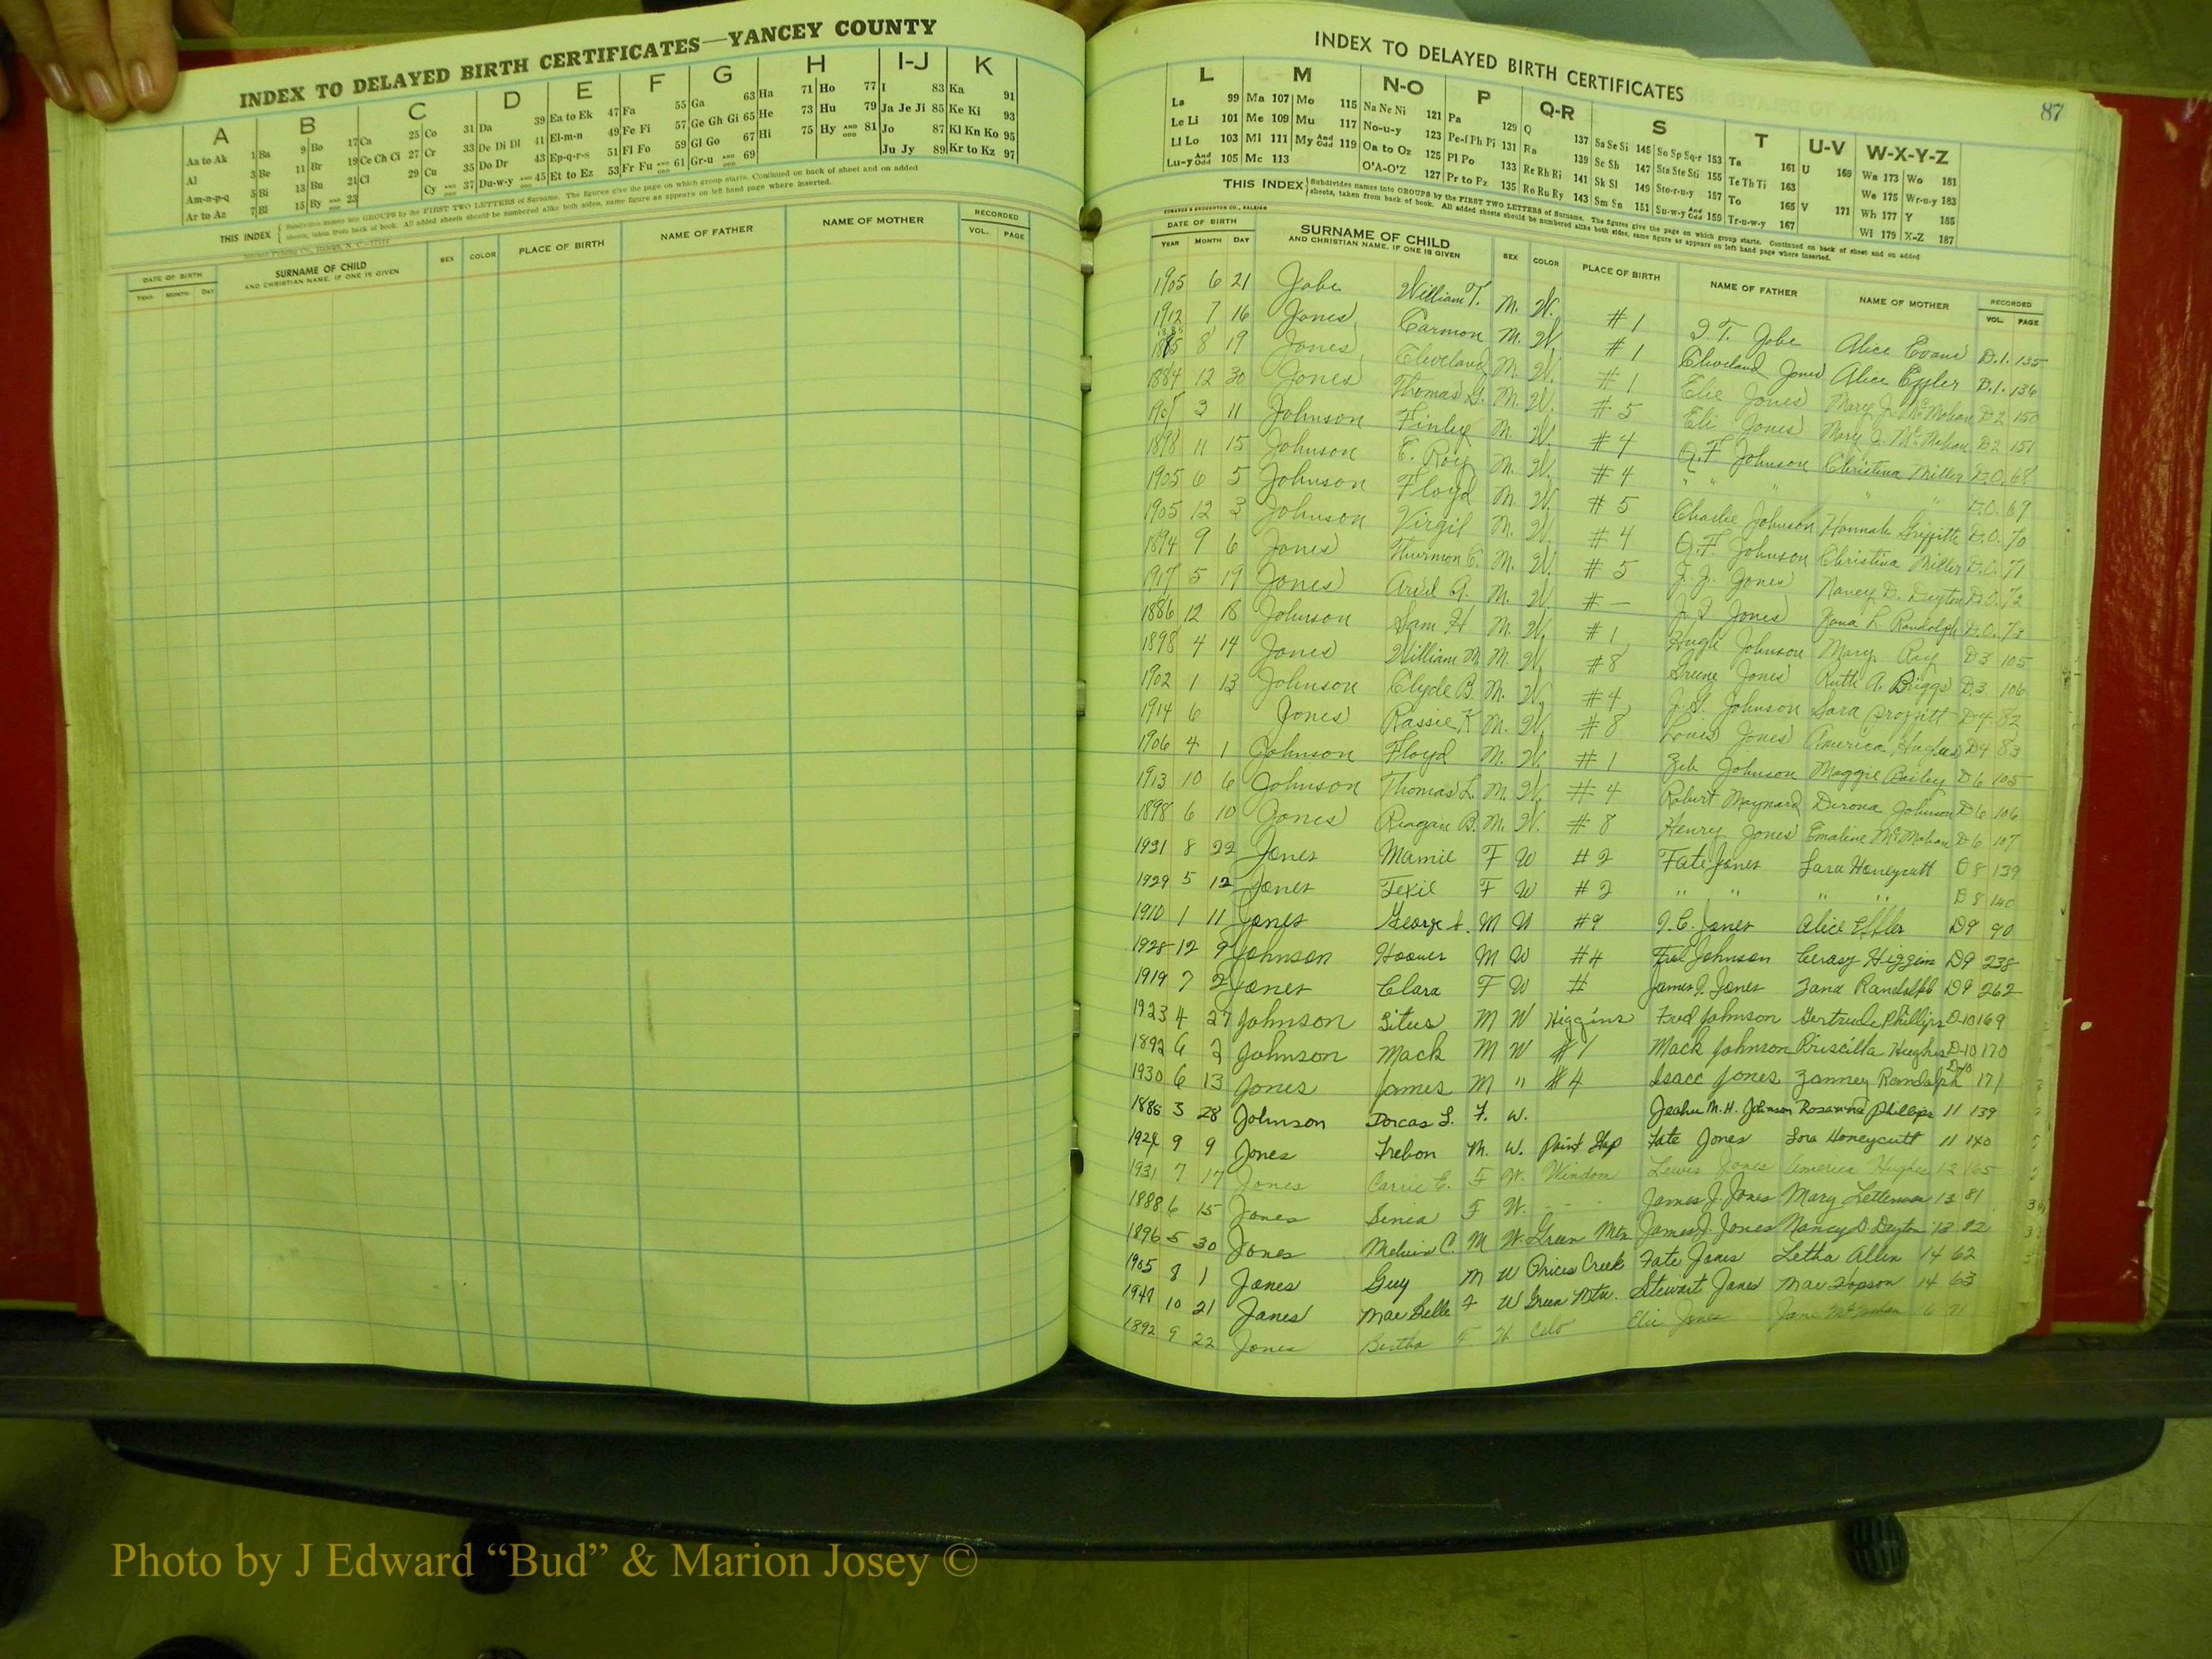 INDEX TO DELAYED BIRTH CERTIFICATES—YANCEY COUNTY
A B C D E F G H I-J K
Aa to Ak 1 Ba 9 Bo 17 Ca 25 Co 31 Da 39 Ea to Ek 47 Fa 55 Ga 63 Ha 71 Ho 77 I 83 Ka 91
Al 3 Be 11 Br 19 Ce Ch Ci 27 Cr 33 De Di Dl 41 El-m-n 49 Fe Fi 57 Ge Gh Gi 65 He 73 Hu 79 Ja Je Ji 85 Ke Ki 93
Am-n-p-q 5 Bi 13 Bu 21 Cl 29 Cu 35 Do Dr 43 Ep-q-r-s 51 Fl Fo 59 Gl Go 67 Hi 75 Hy AND ODD 81 Jo 87 Kl Kn Ko 95
Ar to Az 7 Bl 15 By AND ODD 23 Cy AND ODD 37 Du-w-y AND ODD 45 Et to Ez 53 Fr Fu AND ODD 61 Gr-u AND ODD 69 Ju Jy 89 Kr to Kz 97
THIS INDEX { Subdivides names into GROUPS by the FIRST TWO LETTERS of Surname. The figures give the page on which group starts. Continued on back of sheet and on added
sheets, taken from back of book. All added sheets should be numbered alike both sides, same figure as appears on left hand page where inserted.
DATE OF BIRTH SURNAME OF CHILD SEX COLOR PLACE OF BIRTH NAME OF FATHER NAME OF MOTHER RECORDED
YEAR MONTH DAY AND CHRISTIAN NAME, IF ONE IS GIVEN VOL. PAGE
INDEX TO DELAYED BIRTH CERTIFICATES
87
L M N-O P Q-R S T U-V W-X-Y-Z
La 99 Ma 107 Mo 115 Na Ne Ni 121 Pa 129 Q 137 Sa Se Si 145 So Sp Sq-r 153 Ta 161 U 169 Wa 173 Wo 181
Le Li 101 Me 109 Mu 117 No-u-y 123 Pe-f Ph Pi 131 Ra 139 Sc Sh 147 Sta Ste Sti 155 Te Th Ti 163 We 175 Wr-u-y 183
Ll Lo 103 Mi 111 My And Odd 119 Oa to Oz 125 Pl Po 133 Re Rh Ri 141 Sk Sl 149 Sto-r-u-y 157 To 165 V 171 Wh 177 Y 185
Lu-y And Odd 105 Mc 113 O'A-O'Z 127 Pr to Pz 135 Ro Ru Ry 143 Sm Sn 151 Su-w-y And Odd 159 Tr-u-w-y 167 Wi 179 X-Z 187
THIS INDEX { Subdivides names into GROUPS by the FIRST TWO LETTERS of Surname. The figures give the page on which group starts. Continued on back of sheet and on added
sheets, taken from back of book. All added sheets should be numbered alike both sides, same figure as appears on left hand page where inserted.
EDWARDS & BROUGHTON CO., RALEIGH
DATE OF BIRTH SURNAME OF CHILD SEX COLOR PLACE OF BIRTH NAME OF FATHER NAME OF MOTHER RECORDED
YEAR MONTH DAY AND CHRISTIAN NAME, IF ONE IS GIVEN VOL. PAGE
1905 6 21 Jobe William T. M. W. #1 Jobe Alice Evans D.1. 135
1912 7 16 Jones Carmon M. W. #1 Cleveland Jones Alice Effler D.1. 136
1885 8 19 Jones Cleveland M. W. #1 Elie Jones Mary J. McMahan D2 150
1884 12 30 Jones Thomas G. M. W. #5 Eli Jones Mary J. McMahan D2 151
1907 3 11 Johnson Finley M. W. #4 Johnson Christina Miller D.O. 68
1898 11 15 Johnson E. Roy M. W. #4 " " " " " D.O. 69
1905 6 5 Johnson Floyd M. W. #5 Charlie Johnson Hannah Griffith D.O. 70
1905 12 3 Johnson Virgil M. W. #4 Johnson Christina Miller D.O. 71
1894 9 6 Jones Thurmon C. M. W. #5 J. J. Jones Nancy D. Deyton D.O. 72
1917 5 19 Jones Arvil A. M. W. # — Jones Zona L Randolph D.O. 73
1886 12 18 Johnson Sam H M. W. #1 Hugh Johnson Mary Ray D3 105
1898 4 14 Jones William M. M. W. #8 Greene Jones Ruth A. Briggs D.3 106
1902 1 13 Johnson Clyde B. M. W. #4 Johnson Sara Proffitt D4 82
1914 6 Jones Rassie K M. W. #8 Louis Jones America Hughes D4 83
1906 4 1 Johnson Floyd M. W. #1 Zeb Johnson Maggie Bailey D6 105
1913 10 6 Johnson Thomas L. M. W. #4 Robert Maynard Johnson D6 106
1898 6 10 Jones Reagan B. M. W. #8 Henry Jones Emaline McMahan D6 107
1921 8 22 Jones Mamie F W #2 Fate Jones Sara Honeycutt D8 139
1929 5 12 Jones Texie F W #2 " " " " D8 140
1910 1 11 Jones George M W #9 Jones Alice Effler D9 90
1928 12 9 Johnson Hoover M W #4 Johnson Higgins D9 238
1919 7 2 Jones Clara F W # James Jones Zana Randolph D9 262
1923 4 27 Johnson Situs M W Higgins Fred Johnson Gertrude Phillips D-10 169
1892 6 2 Johnson Mack M W #1 Mack Johnson Priscilla Hughes D-10 170
1930 6 13 Jones James M " #4 Isacc Jones Zanney Randolph D-10 171
1886 3 28 Johnson Dorcas L. F. W. M. H. Johnson Rosannna Phillips 11 139
1924 9 9 Jones Trebon M. W. Paint Gap Fate Jones Sora Honeycutt 11 140
1931 7 17 Jones Carrie E. F W. Windom Lewis Jones America Hughes 12 165
1888 6 15 Jones Senea F W. - - - James J. Jones Mary Letterman 13 81
1896 5 30 Jones Melvin C. M W. Green Mtn James J. Jones Nancy D. Deyton 13 82
1905 8 1 Jones Guy M W Prices Creek Fate Jones Letha Allen 14 62
1949 10 21 Jones Mae Belle F W Green Mtn. Stewart Jones Mae Hopson 14 63
1892 9 22 Jones Bertha F W Celo Elie Jones Jane McMahan 6 71
Photo by J Edward “Bud” & Marion Josey ©